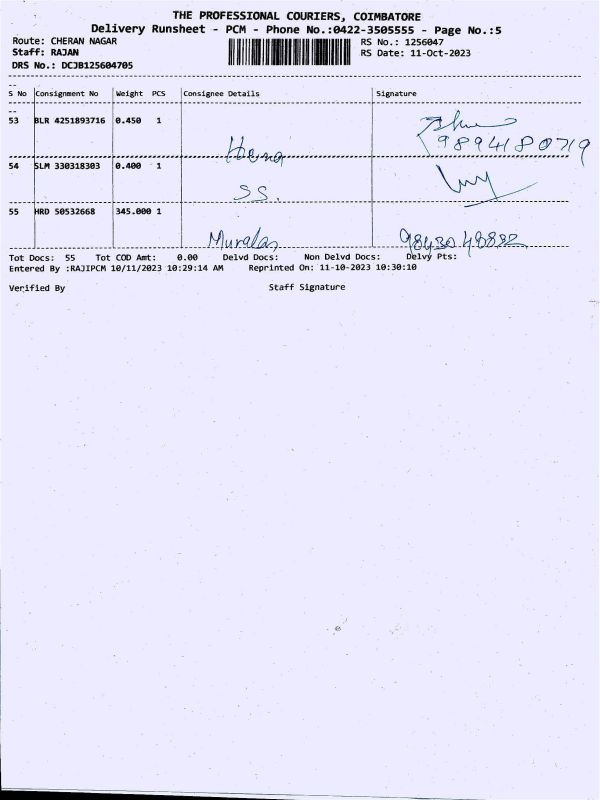 THE PROFESSIONAL COURIERS, COIMBATORE
Delivery Runsheet - PCM - Phone No.:0422-3505555 - Page No.:5
Route: CHERAN NAGAR RS No.: 1256047
Staff: RAJAN RS Date: 11-Oct-2023
DRS No.: DCJB125604705
S No Consignment No Weight PCS Consignee Details Signature
53 BLR 4251893716 0.450 1
9894180719
Hema
54 SLM 330318303 0.400 1
SS.
55 HRD 50532668 345.000 1
Murala
Tot Docs: 55 Tot COD Amt: 0.00 Delvd Docs: Non Delvd Docs: Delvy Pts:
Entered By :RAJIPCM 10/11/2023 10:29:14 AM Reprinted On: 11-10-2023 10:30:10
Verified By Staff Signature